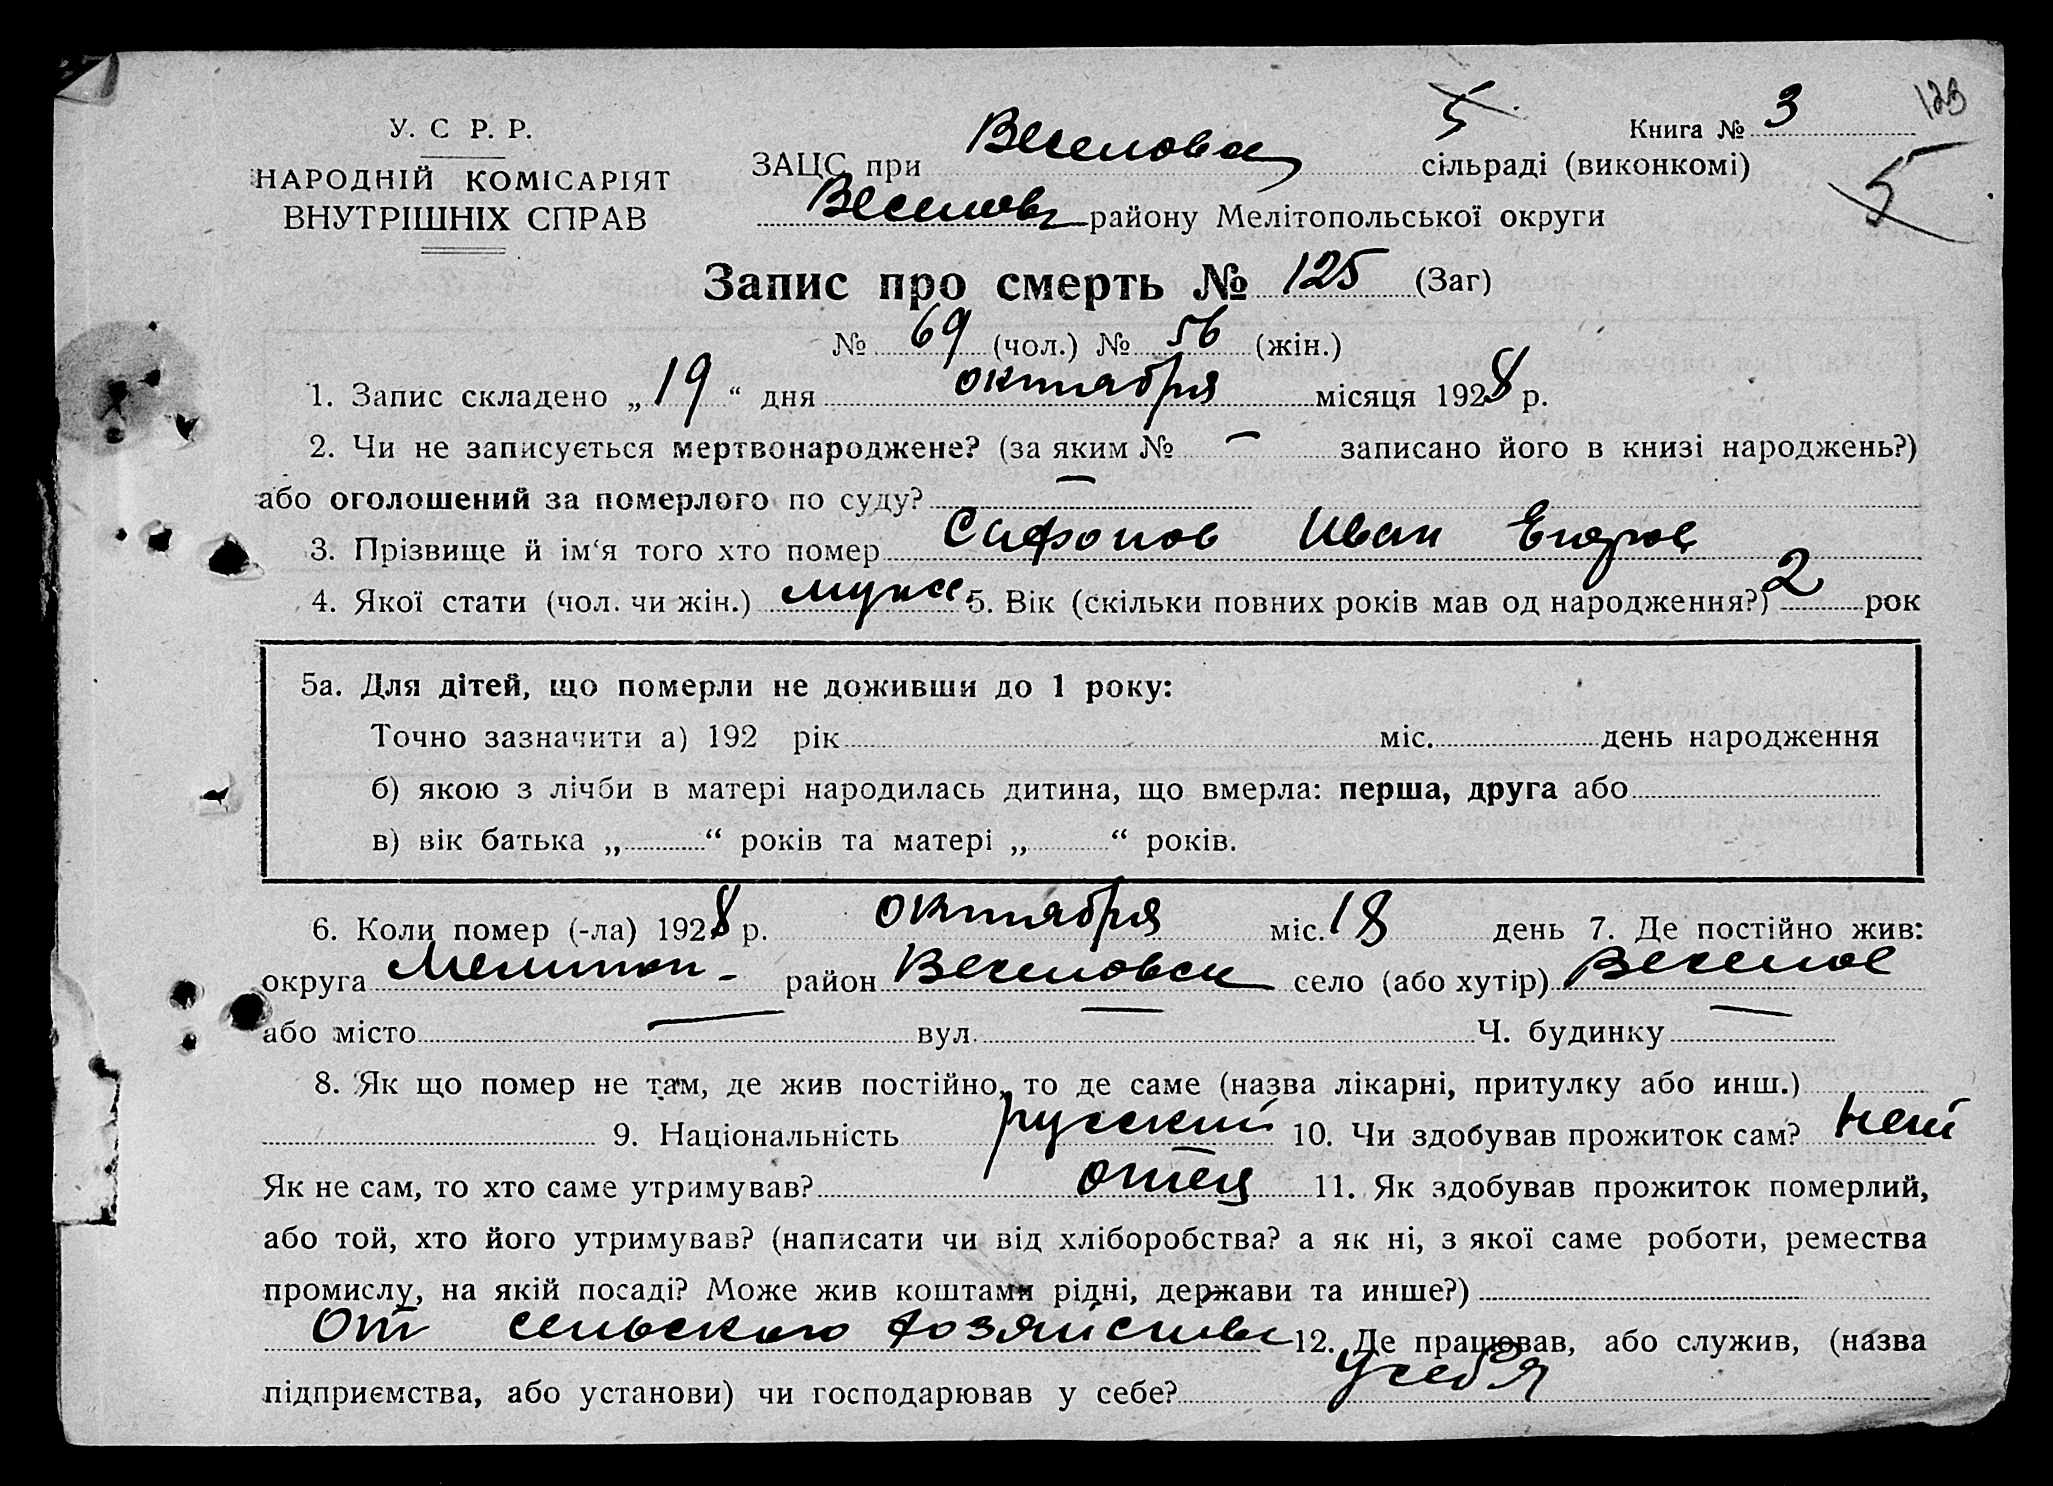 123
У. С Р. Р.
НАРОДНІЙ КОМІСАРІЯТ
ВНУТРІШНІХ СПРАВ
5
Книга № 3
ЗАЦС при Веселовск сільраді (виконкомі)
5
Веселовск району Мелітопольської округи
Запис про смерть № 125 (Заг)
№ 69 (чол.) № 56 (жін.)
1. Запис складено „19“ дня октября місяця 1928 р.
2. Чи не записується мертвонароджене? (за яким № — записано його в книзі народжень?)
або оголошений за померлого по суду? —
3. Прізвище й ім‘я того хто помер Сафонов Иван Егоров
4. Якої стати (чол. чи жін.) мужс 5. Вік (скільки повних років мав од народження?) 2 рок
5а. Для дітей, що померли не доживши до 1 року:
Точно зазначити а) 192 рік міс. день народження
б) якою з лічби в матері народилась дитина, що вмерла: перша, друга або
в) вік батька „ “ років та матері „ “ років.
6. Коли помер (-ла) 1928 р. октября міс. 18 день 7. Де постійно жив:
округа Мелитоп- район Веселовск село (або хутір) Веселое
або місто — вул. — Ч. будинку —
8. Як що помер не там, де жив постійно, то де саме (назва лікарні, притулку або инш.)
9. Національність русский 10. Чи здобував прожиток сам? нет
Як не сам, то хто саме утримував? отец 11. Як здобував прожиток померлий,
або той, хто його утримував? (написати чи від хліборобства? а як ні, з якої саме роботи, ремества
промислу, на якій посаді? Може жив коштами рідні, держави та инше?)
От сельского хозяйства 12. Де працював, або служив, (назва
підприємства, або установи) чи господарював у себе? у себя